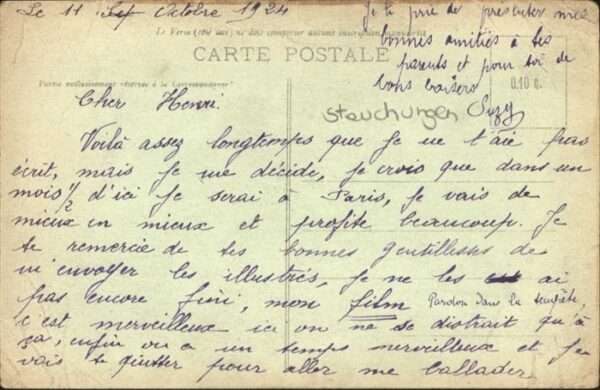 Le 11 Octobre 1924
Je te prie de presenter mes
bonnes amitiés à tes
parents et pour toi de
bons baisers
Suzy
Le Verso (côté vue) ne doit comporter aucune inscription manuscrite
CARTE POSTALE
Partie exclusivement réservée à la Correspondance
0.10 c.
Cher Henri.
Voilà assez longtemps que je ne t'aie pas
écrit, mais je me décide, je crois que dans un
mois 1/2 d'ici je serai à Paris, je vais de
mieux en mieux et profite beaucoup. Je
te remercie de tes bonnes gentillesses de
m'envoyer les illustrés, je ne les ai
pas encore fini, mon film Pardon Dans la tempête,
c'est merveilleux ici on ne se distrait qu'à
ça, enfin on a un temps merveilleux et je
vais te quitter pour aller me ballader